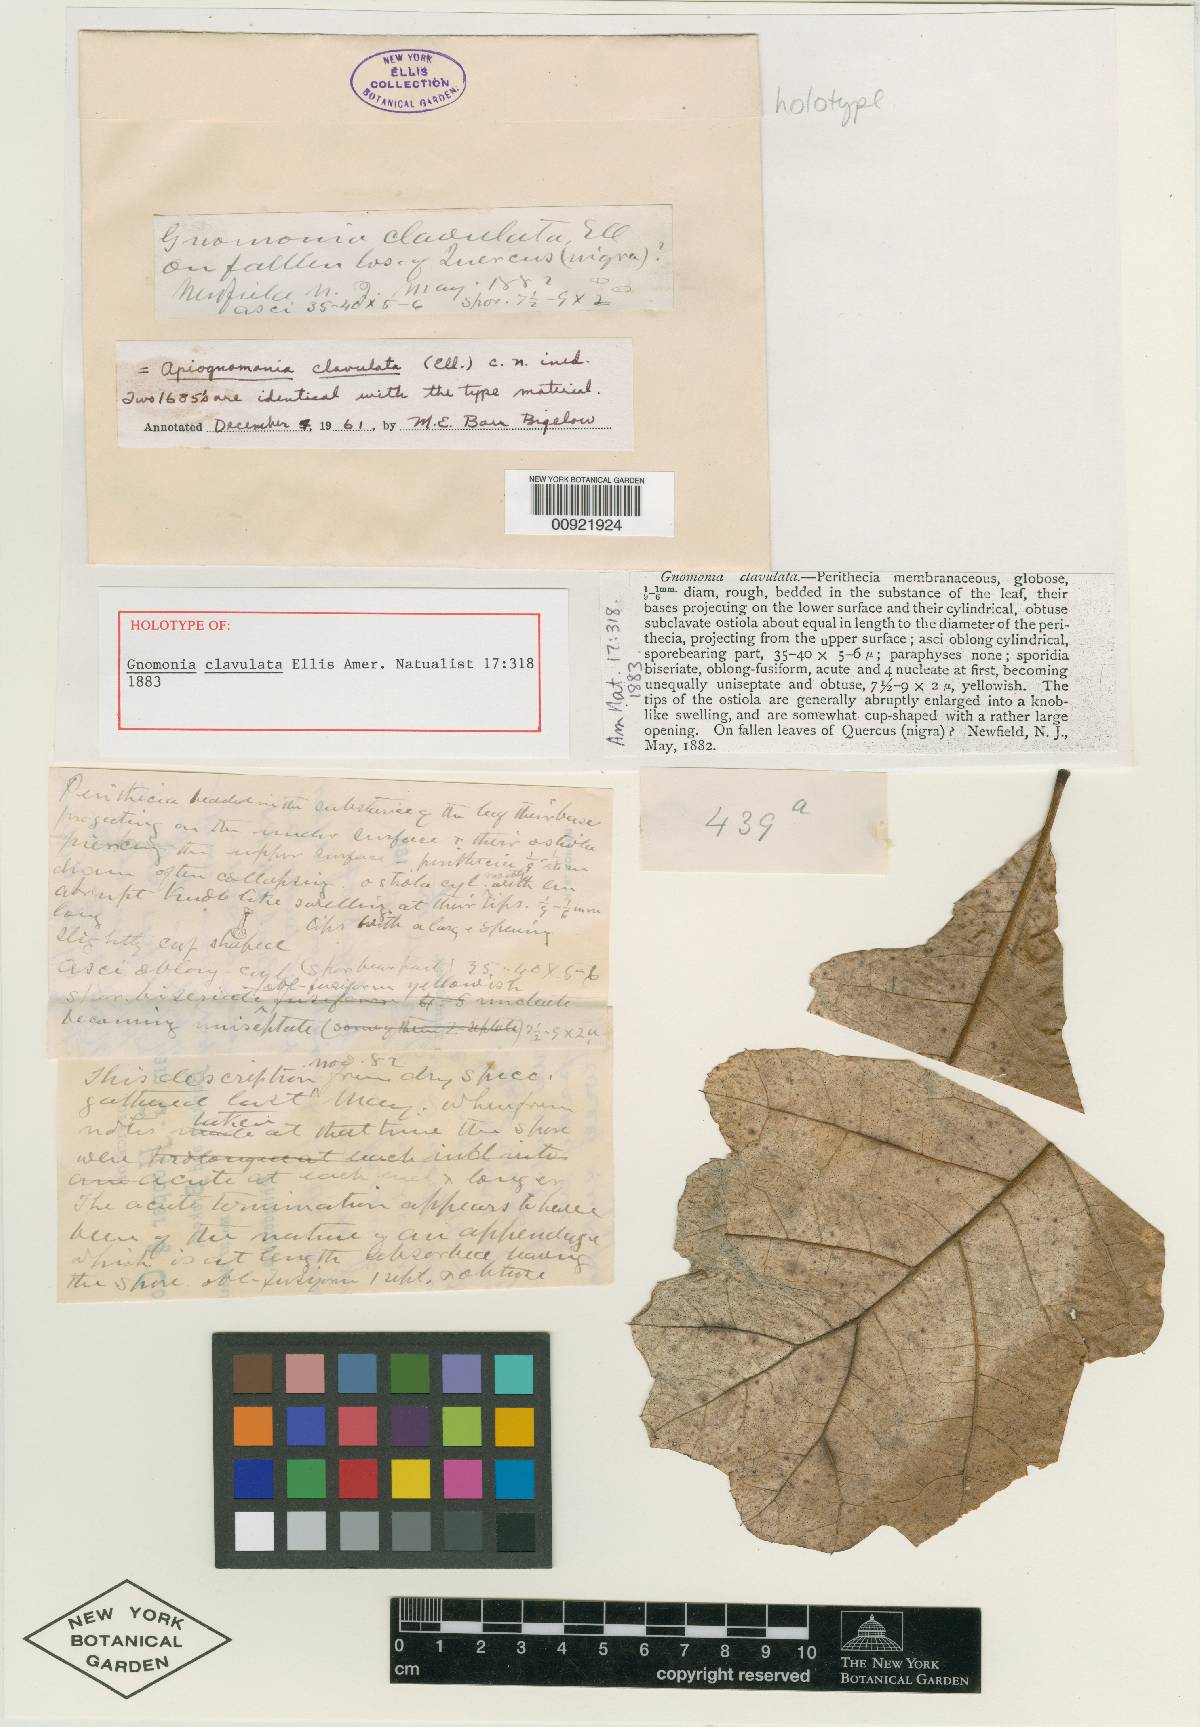 NEW YORK
ELLIS
COLLECTION
BOTANICAL GARDEN.
holotype
Gnomonia clavulata, Ell
on fallen lvs. of Quercus (nigra)?
Newfield N. J. May. 1882
asci 35-40 x 5-6 spor. 7½-9 x 2
= Apiognomonia clavulata (Ell.) c. n. ined.
Two 1685's are identical with the type material.
Annotated December 4, 1961, by M. E. Barr Bigelow
NEW YORK BOTANICAL GARDEN
00921924
HOLOTYPE OF:
Gnomonia clavulata Ellis Amer. Natualist 17:318
1883
Am Nat. 17:318.
1883
Gnomonia clavulata.—Perithecia membranaceous, globose,
1/9-1/6 mm. diam, rough, bedded in the substance of the leaf, their
bases projecting on the lower surface and their cylindrical, obtuse
subclavate ostiola about equal in length to the diameter of the peri-
thecia, projecting from the upper surface; asci oblong cylindrical,
sporebearing part, 35-40 × 5-6 µ; paraphyses none; sporidia
biseriate, oblong-fusiform, acute and 4 nucleate at first, becoming
unequally uniseptate and obtuse, 7½-9 × 2 µ, yellowish. The
tips of the ostiola are generally abruptly enlarged into a knob-
like swelling, and are somewhat cup-shaped with a rather large
opening. On fallen leaves of Quercus (nigra)? Newfield, N. J.,
May, 1882.
Perithecia bedded in the substance of the leaf their base
projecting on the under surface & their ostiola
piercing the upper surface - perithecia 1/9-1/6 mm
diam often collapsing. ostiola cyl. with an
abrupt knob like swelling at their tips. 1/9-1/6 mm
long tips with a large opening
slightly cup shaped
asci oblong-cyl (spor bear part) 35-40 x 5-6
obl-fusiform yellowish
spor. biseriate fusiform nucleate
becoming uniseptate (some of them 2-septate) 7½-9 x 2 µ
nov. 82
This description from dry spec.
gathered last May. when from
taken
notes made at that time the spore
were
acute at each end & longer
The acute termination appears to have
been of the nature of an appendage
which is at length absorbed leaving
the spore obl-fusiform 1 sept. & obtuse
439 a
NEW YORK
BOTANICAL
GARDEN
0 1 2 3 4 5 6 7 8 9 10
cm
copyright reserved
THE NEW YORK
BOTANICAL GARDEN